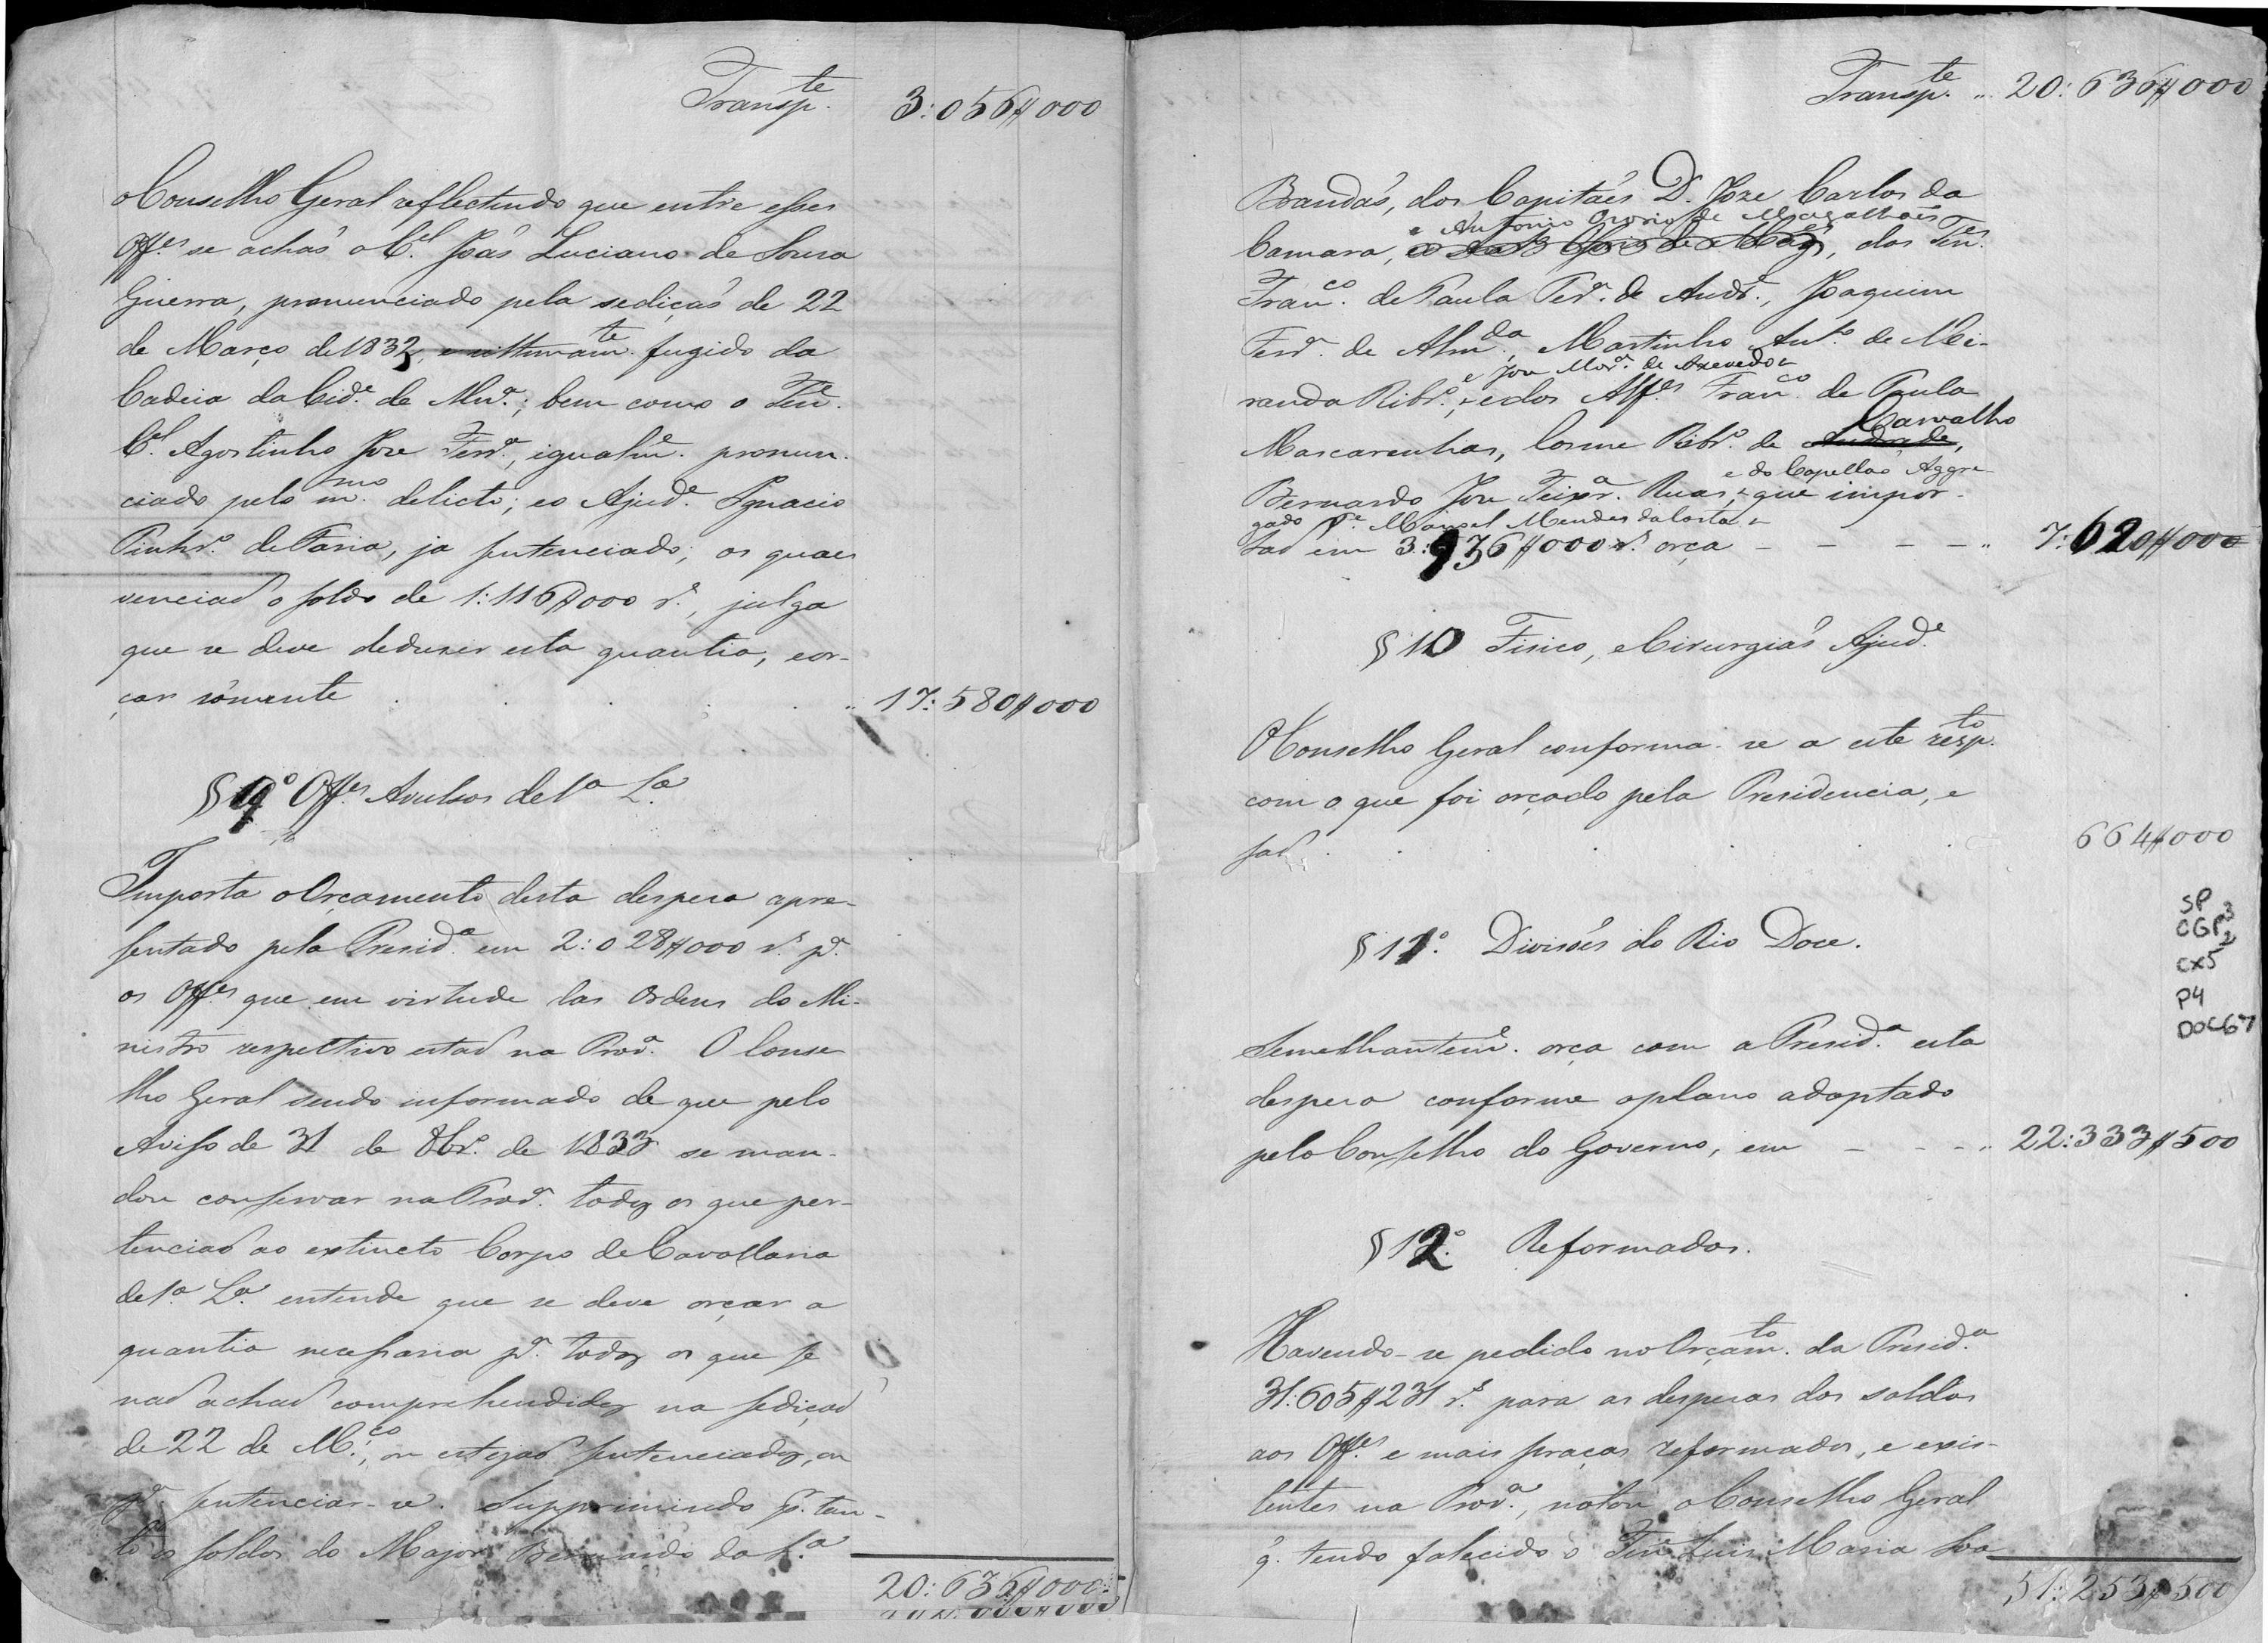 Transp.te 3:056$000
o Conselho Geral reflectindo que entre esses
Off.es se achaõ o C.el Joaõ Luciano de Souza
Guerra, pronunciado pela sediçaõ de 22
de Março de 1833, e ultimam.te fugido da
Cadeia da Cid.e de Mar.a; bem como o Ten.e
C.el Agostinho Joze Ferr.a, igualm.e pronun-
ciado pelo m.mo delicto; e o Ajud.e Ignacio
Pinhr.o de Faria, ja sentenciado; os quaes
venciaõ o soldo de 1:116$000 r.s, julga
que se deve deduzir esta quantia, e or-
çar sómente . . . . . " 17:580$000
§ 9º Off.es Avulsos de 1ª L.a
Importa o Orçamento desta despeza apre-
sentado pela Presid.a em 2:028$000 r.s p.a
os Off.es que em virtude das Ordens do Mi-
nistro respettivo estaõ na Prov.a O Conse
lho Geral sendo informado de que pelo
Aviso de 31 de 8br.o de 1833 se man-
dou conservar na Prov.a todos os que per-
tenciaõ ao extincto Corpo de Cavallaria
de 1.a L.a entende que se deve orçar a
quantia necessaria p.a todos os que se
naõ achaõ comprehendidos na sediçaõ
de 22 de M.ço, ou estejaõ sentenciados, ou
p.a sentenciar-se. Supprimindo p.r tan-
to os soldos do Major Bernardo da S.a
20:636$000
Transp.te " 20:636$000
Brandaõ, dos Capitães D. Joze Carlos da
e Antonio Ozorio de Magalhães
Camara, dos Ten.es
Fran.co de Paula Ferr.a de Andr.e, Joaquim
Ferr.a de Alm.da, Martinho Ant.o de Mi-
e Joze Mor.a de Azevedo
randa Ribr.o, e dos Alf.es Fran.co de Paula
Carvalho
Mascarenhas, Cosme Ribr.o de Andrade,
e do Capellaõ Aggre
Bernardo Joze Teixr.a Ruas, que impor-
gado P.e Manoel Mendes da Costa
taõ em 3:936$000 r.s orça - - - - " 7:620$000
§ 10 Fisico, e Cirurgiaõ Ajud.e
O Conselho Geral conforma-se a este resp.to
com o que foi orçado pela Presidencia, e
saõ . . . . . 664$000
SP
CGP3
2
CX5
P4
DOC67
§ 11º. Divisões do Rio Doce.
Semelhantem.e orça com a Presid.a esta
despeza conforme o plano adoptado
pelo Conselho do Governo, em - - - " 22:333$500
§ 12º. Reformados.
Havendo-se pedido no Orçam.to da Presid.a
31:605$231 r.s para as despezas dos soldos
aos Off.es e mais praças reformados, e exis-
tentes na Prov.a, notou o Conselho Geral
q. tendo falecido o Ten.e Luis Maria Soa
51:253$500